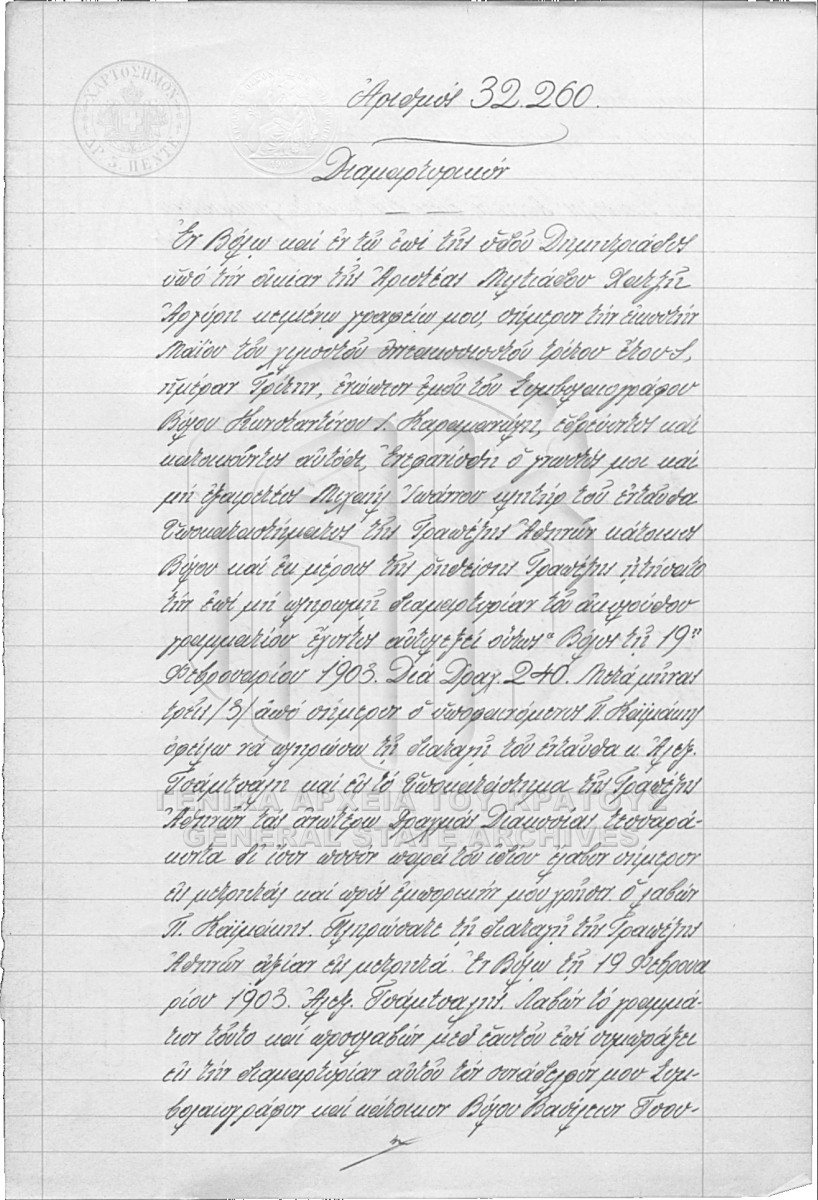 ΧΑΡΤΟΣΗΜΟΝ
ΔΡ. 5. ΠΕΝΤΕ
Ἀριθμὸς 32.260.
Διαμαρτυρικόν
Ἐν Βόλῳ καὶ ἐν τῷ ἐπὶ τῆς ὁδοῦ Δημητριάδος
ὑπὸ τὴν οἰκίαν τῆς Ἀριστέας Μιλτιάδου Χατζῆ
Ἀργύρη κειμένῳ γραφείῳ μου, σήμερον τὴν εἰκοστὴν
Μαΐου τοῦ χιλιοστοῦ ἐννεακοσιοστοῦ τρίτου ἔτους,
ἡμέραν Τρίτην, ἐνώπιον ἐμοῦ τοῦ Συμβολαιογράφου
Βόλου Κωνσταντίνου Καραμανώλη, ἑδρεύοντος καὶ
κατοικοῦντος αὐτόθι, ἐνεφανίσθη ὁ γνωστός μοι καὶ
μὴ ἐξαιρετέος Μιχαὴλ Ἰωάννου κλητὴρ τοῦ ἐνταῦθα
Ὑποκαταστήματος τῆς Τραπέζης Ἀθηνῶν κάτοικος
Βόλου καὶ ἐκ μέρους τῆς ῥηθείσης Τραπέζης ᾐτήσατο
τὴν ἐπὶ μὴ πληρωμῇ διαμαρτυρίαν τοῦ ἀκολούθου
γραμματίου ἔχοντος αὐτολεξεὶ οὕτως "Βόλος τῇ 19ῃ
Φεβρουαρίου 1903. Διὰ Δραχ. 240. Μετὰ μῆνας
τρεῖς /3/ ἀπὸ σήμερον ὁ ὑποφαινόμενος Π. Καϊμάκης
ὀφείλω νὰ πληρώσω τῇ διαταγῇ τοῦ ἐνταῦθα κ. Ἀλεξ.
Τσάμτσαλη καὶ εἰς τὸ Ὑποκατάστημα τῆς Τραπέζης
Ἀθηνῶν τὰς ἀνωτέρω Δραχμὰς Διακοσίας τεσσαρά-
κοντα δι' ἴσον ποσὸν παρὰ τοῦ ἰδίου ἔλαβον σήμερον
εἰς μετρητὰς καὶ πρὸς ἐμπορικήν μου χρῆσιν. ὁ λαβὼν
Π. Καϊμάκης. Πληρώσατε τῇ διαταγῇ τῆς Τραπέζης
Ἀθηνῶν ἀξίαν εἰς μετρητά. Ἐν Βόλῳ τῇ 19 Φεβρουα
ρίου 1903. Ἀλεξ. Τσάμτσαλης. Λαβὼν τὸ γραμμά-
τιον τοῦτο καὶ προσλαβὼν μεθ' ἑαυτοῦ ἐπὶ συμπράξει
εἰς τὴν διαμαρτυρίαν αὐτοῦ τὸν συνάδελφόν μου Συμ-
βολαιογράφον καὶ κάτοικον Βόλου Βασίλειον Τσου-
ΓΕΝΙΚΑ ΑΡΧΕΙΑ ΤΟΥ ΚΡΑΤΟΥΣ
GENERAL STATE ARCHIVES